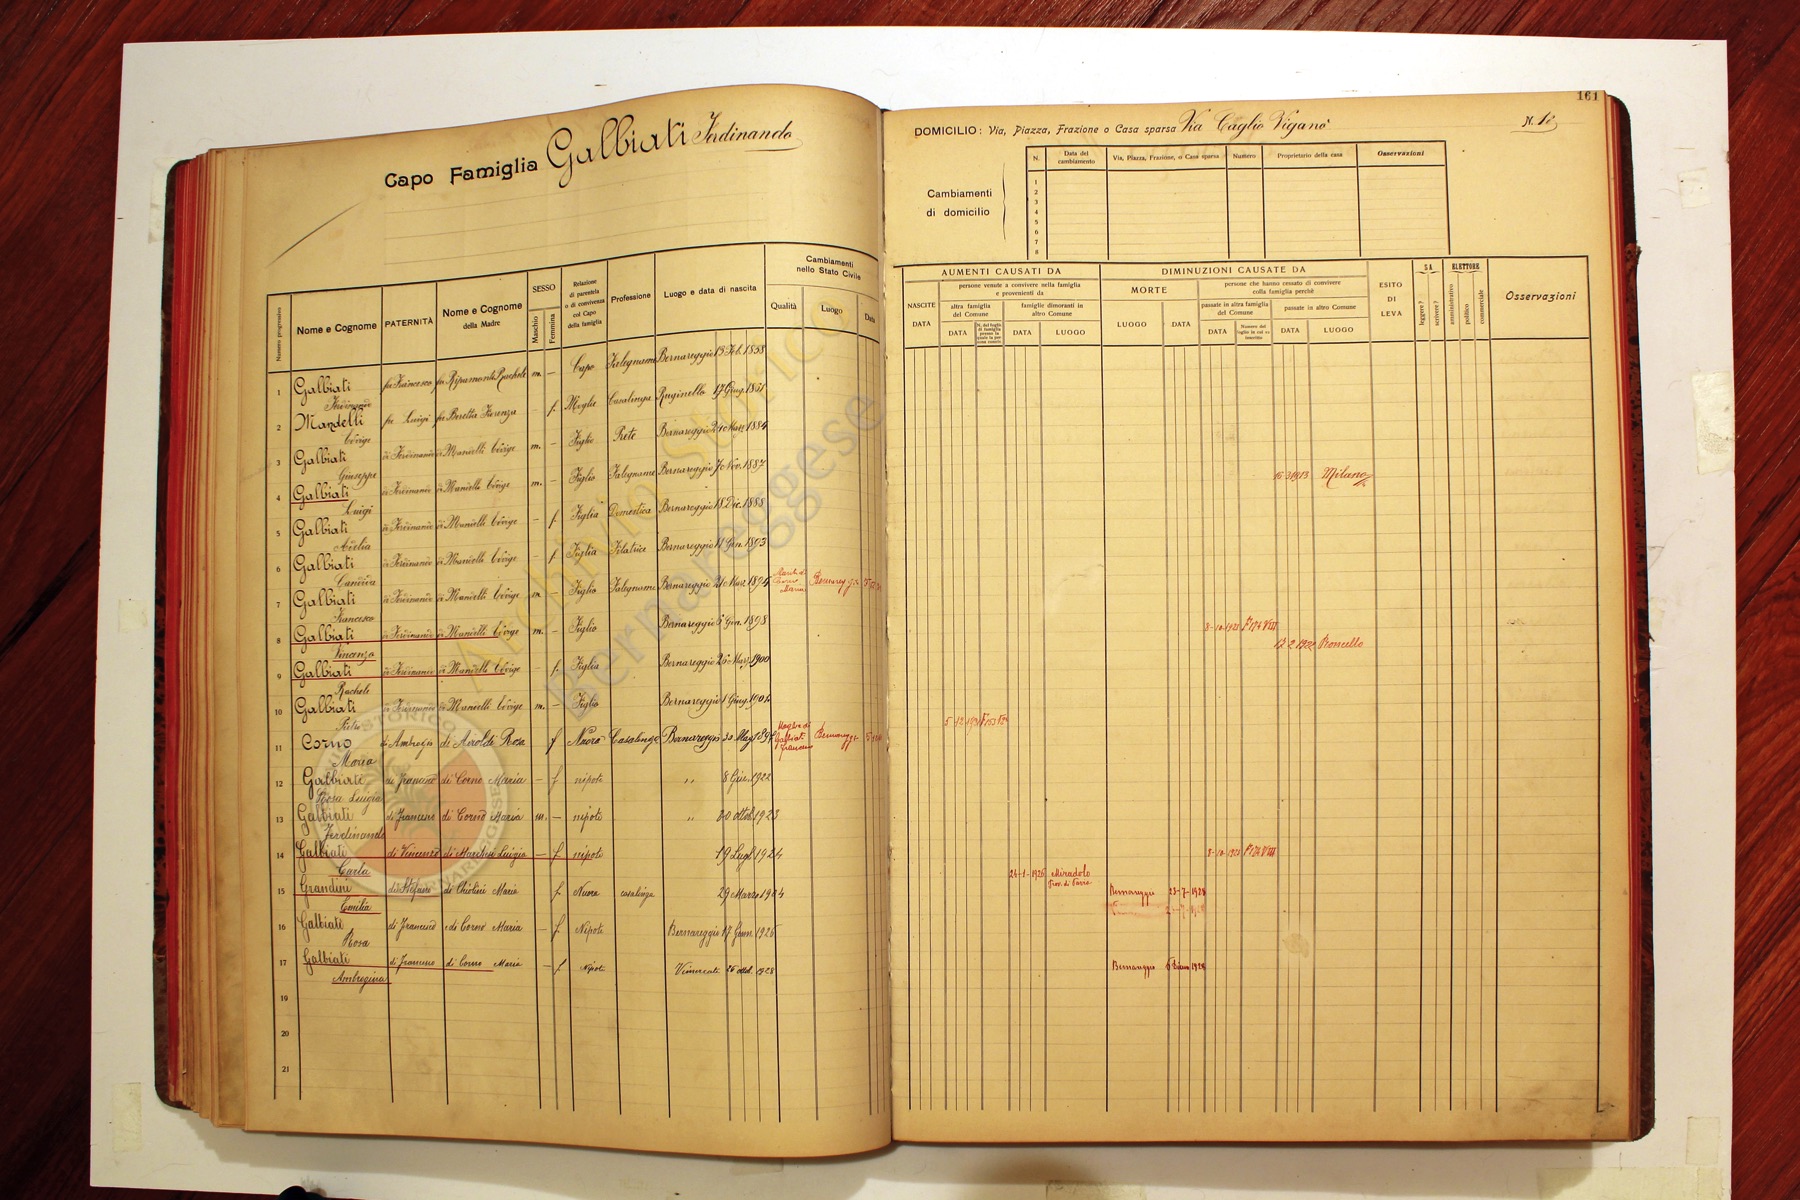 Capo Famiglia Galbiati Ferdinando
161
DOMICILIO: Via, Piazza, Frazione o Casa sparsa Via Caglio Viganò
Cambiamenti
di domicilio
N. Data del cambiamento Via, Piazza, Frazione, o Casa sparsa Numero Proprietario della casa Osservazioni
1
2
3
4
5
6
7
8
Numero progressivo
Nome e Cognome
PATERNITÀ
Nome e Cognome della Madre
SESSO
Maschio
Femmina
Relazione di parentela o di convivenza col Capo della famiglia
Professione
Luogo e data di nascita
Cambiamenti nello Stato Civile
Qualità Luogo Data
1 Galbiati Ferdinando fu Francesco fu Ripamonti Rachele m. – Capo Falegname Bernareggio 15 Feb. 1858
2 Mandelli Edvige fu Luigi fu Beretta Fiorenza – f. Moglie Casalinga Ruginello 17 Giug. 1861
3 Galbiati Giuseppe di Ferdinando di Mandelli Edvige m. – Figlio Prete Bernareggio Marz. 1884
4 Galbiati Luigi di Ferdinando di Mandelli Edvige m. – Figlio Falegname Bernareggio 7 Nov. 1887
5 Galbiati Adelia di Ferdinando di Mandelli Edvige – f. Figlia Domestica Bernareggio 18 Dic. 1888
6 Galbiati Candida di Ferdinando di Mandelli Edvige – f. Figlia Filatrice Bernareggio 11 Gen. 1893
7 Galbiati Francesco di Ferdinando di Mandelli Edvige m. – Figlio Falegname Bernareggio Marz. 1894 Marito di Corno Maria
8 Galbiati Vincenzo di Ferdinando di Mandelli Edvige m. – Figlio Bernareggio 6 Gen. 1898
9 Galbiati Rachele di Ferdinando di Mandelli Edvige – f. Figlia Bernareggio 26 Marz. 1900
10 Galbiati Pietro di Ferdinando di Mandelli Edvige m. – Figlio Bernareggio 1 Giug. 1904
11 Corno Maria di Ambrogio di Airoldi Rosa f Nuora Casalinga Bernareggio 30 Mag. 189 Moglie di Galbiati Francesco
12 Galbiati Rosa Luigia di Francesco di Corno Maria – f nipote " 8 1922
13 Galbiati Ferdinando di Francesco di Corno Maria m. – nipote " 20 ott. 1923
14 Galbiati Carla di Vincenzo di Marchesi Luigia – f nipote 19 Lugl. 1924
15 Grandini Emilia di Stefano di Chiolini Maria f Nuora casalinga 29 Marzo 1904
16 Galbiati Rosa di Francesco di Corno Maria – f Nipote Bernareggio 17 Genn. 1926
17 Galbiati Ambrogina di Francesco di Corno Maria – f Nipote Vimercate 26 ott. 1928
19
20
21
NASCITE
DATA
AUMENTI CAUSATI DA
persone venute a convivere nella famiglia e provenienti da
altra famiglia del Comune
famiglie dimoranti in altro Comune
DATA
DATA LUOGO
DIMINUZIONI CAUSATE DA
MORTE
LUOGO DATA
persone che hanno cessato di convivere colla famiglia perchè
passate in altra famiglia del Comune
passate in altro Comune
DATA
Numero del foglio in cui so inscritto
DATA LUOGO
ESITO
DI
LEVA
SA
leggere?
scrivere?
ELETTORE
amministrativo
politico
commerciale
Osservazioni
16 3 1913 Milano
8-10-1925 F 174 VIII
12 2 1922 Roncello
5 12 1921
8-10-1925 F 174 VIII
24-1-1926 Miradolo Prov. di Pavia
Bernareggio 23-7-1928
Bernareggio 1928
Archivio Storico
Bernareggese